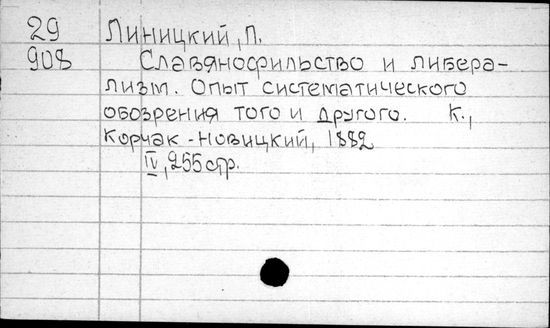 29 Линицкий, П.
908 Славянофильство и либера-
лизм. Опыт систематического
обозрения того и другого. К.,
Корчак-Новицкий, 1882
IV, 255 стр.